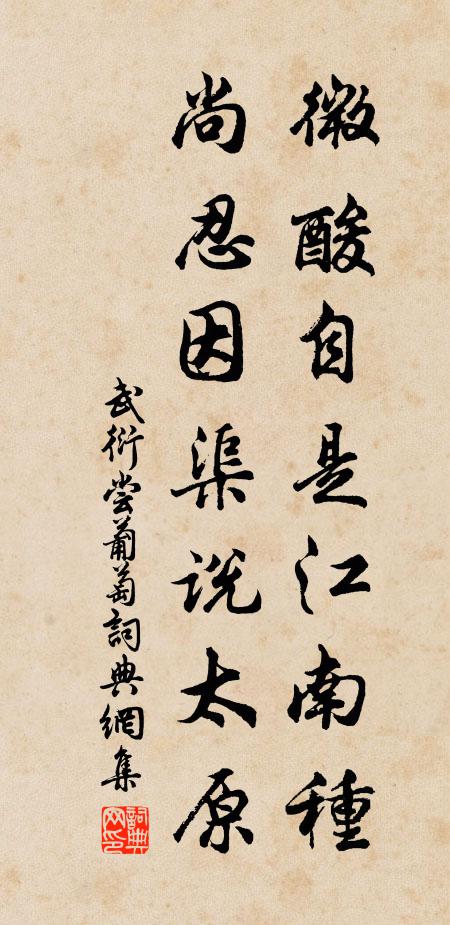 微酸自是江南種
尚忍因渠説太原
武衍嘗葡萄詞典網集
詞典
网印